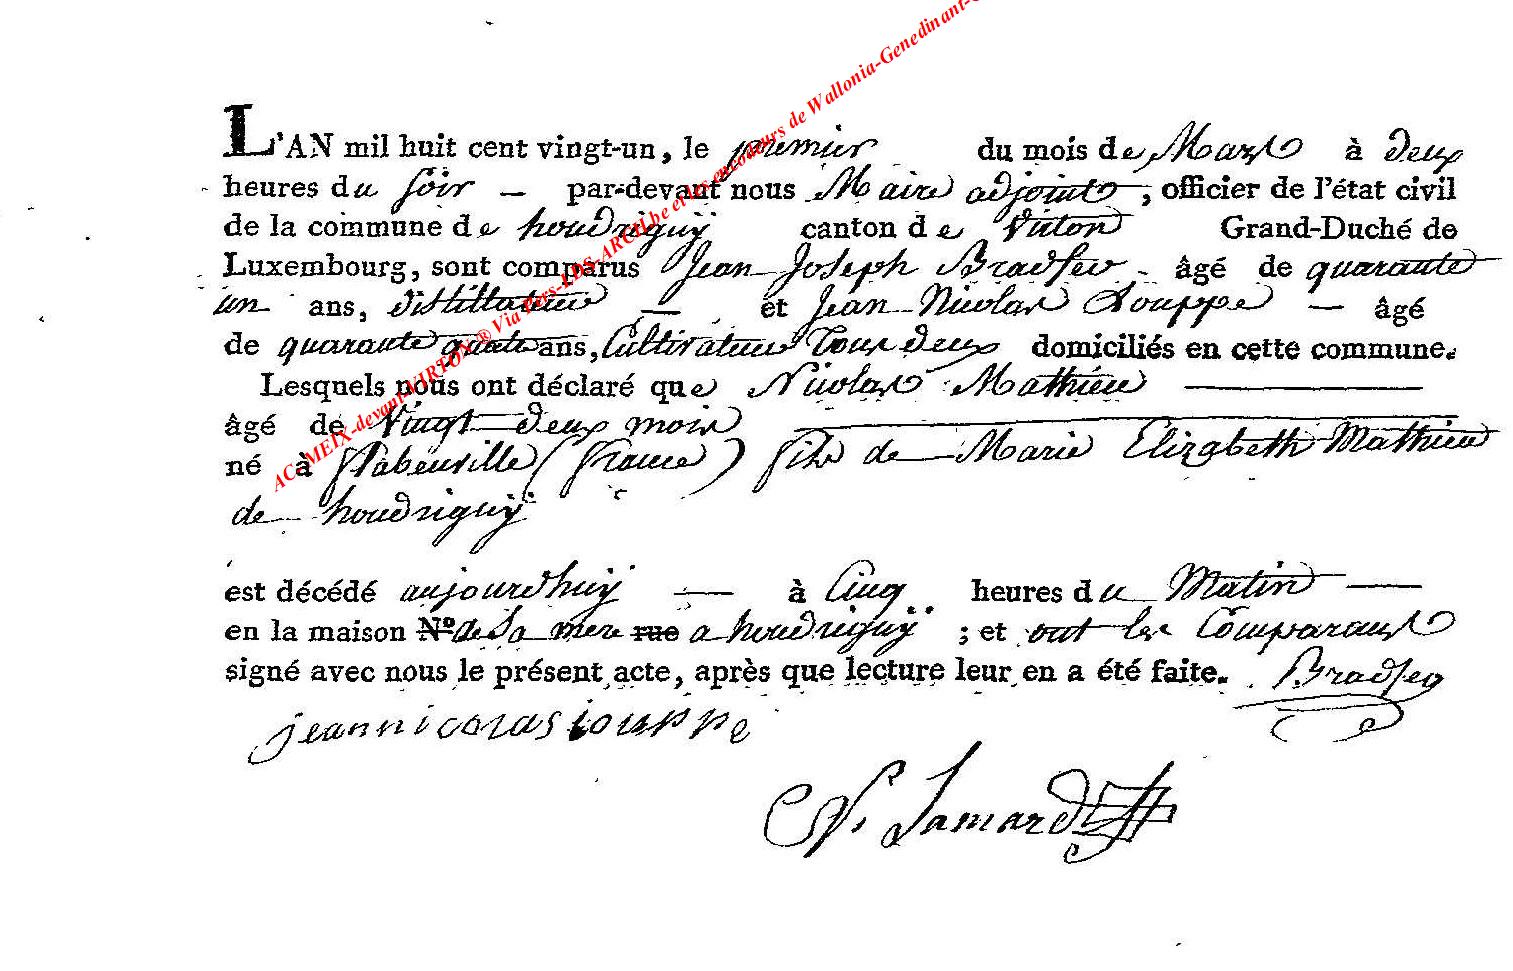 L'AN mil huit cent vingt-un, le premier du mois de Mars à deux
heures du soir — par-devant nous Maire adjoint, officier de l'état civil
de la commune de houdriguÿ canton de Virton Grand-Duché de
Luxembourg, sont comparus Jean Joseph Bradfer âgé de quarante
un ans, distillateur — et Jean Nicolas Souppe — âgé
de quarante quatre ans, Cultivateur tous deux domiciliés en cette commune.
Lesquels nous ont déclaré que Nicolas Mathieu
âgé de Vingt deux mois
né à (france) fils de Marie Elizabeth Mathieu
de houdriguÿ
est décédé aujourdhuÿ — à Cinq heures du Matin —
en la maison N° de Sa mere rue a houdriguÿ ; et ont les Comparans
signé avec nous le présent acte, après que lecture leur en a été faite. Bradfer
jean nicolas souppe
Lamard
AC-MEIX-devant-VIRTON ® Via Pers-LDS-ARCH.be et les encodeurs de Wallonia-Genedinant-